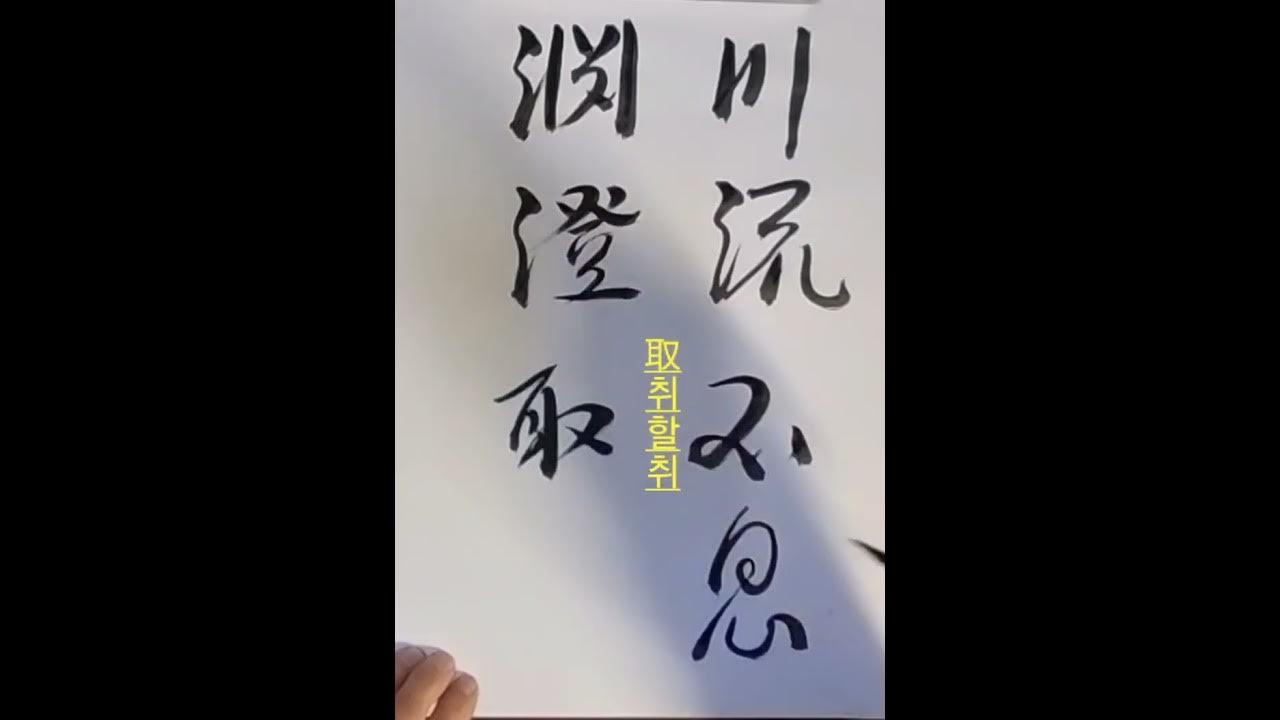 川流不息
渊澄取
取
취
할
취